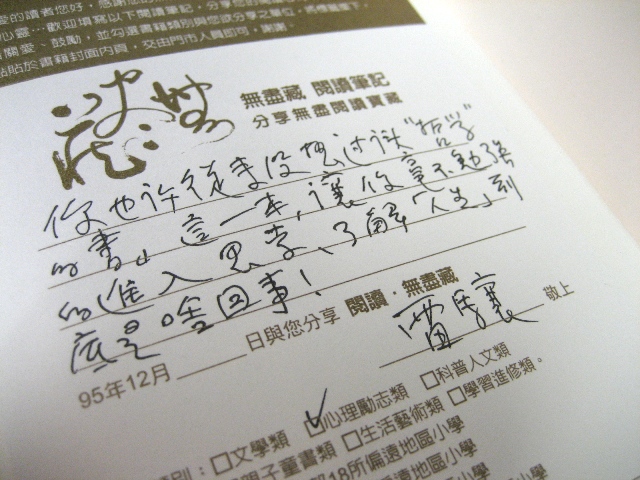 愛的讀者您好，感謝您的
心靈…歡迎填寫以下閱讀筆記，分享您的閱
關愛、鼓勵，並勾選書籍類別與您欲分享之單位，
黏貼於書籍封面內頁，交由門市人員即可，謝謝。
無盡藏 閱讀筆記
分享無盡閱讀寶藏
你也許從來沒想過讀"哲學"
的書」這一本，讓你毫不勉強
的進入思考、了解「人生」到
底是啥回事！
95年12月 日與您分享 閱讀·無盡藏
敬上
別：□文學類 □心理勵志類 □科普人文類
親子童書類 □生活藝術類 □學習進修類。
部18所偏遠地區小學
偏遠地區小學
地區小學